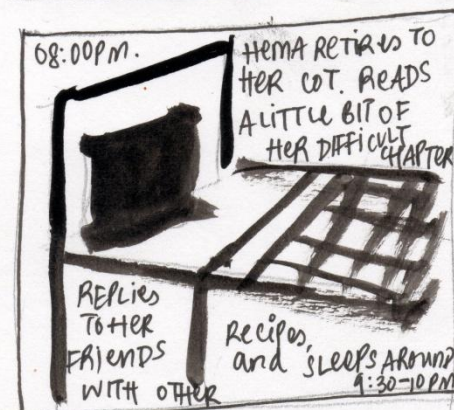 08:00PM.
HEMA RETIRES TO
HER COT. READS
A LITTLE BIT OF
HER DIFFICULT
CHAPTER
REPLIES
TO HER
FRIENDS
WITH OTHER
Recipes,
and SLEEPS AROUND
9:30-10PM